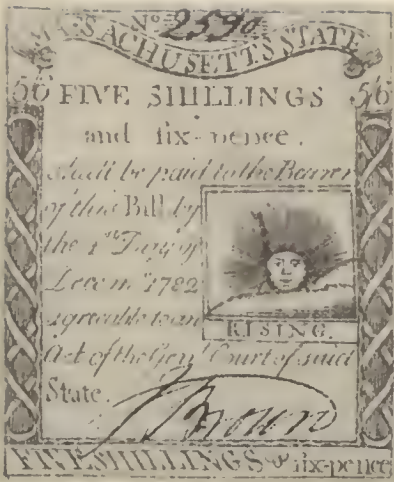 No 2590
MASSACHUSETTS STATE
56 FIVE SHILLINGS 56
and six-pence.
shall be paid to the Bearer
of this Bill by
the 1st Day of
Decm. 1782
agreeable to an
RISING.
Act of the Genl Court of said
State.
J Brown
FIVE SHILLINGS & six-pence